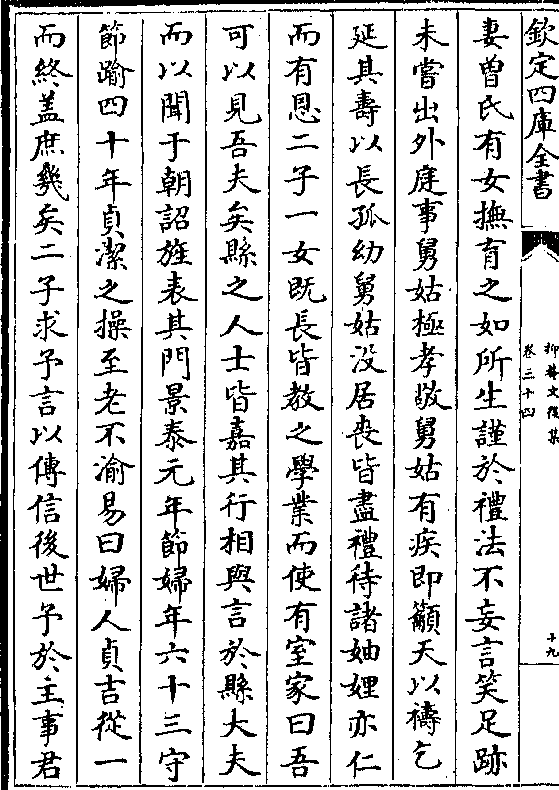 欽定四庫全書
抑菴文後集
卷三十四
十九
妻曽氏有女撫育之如所生謹於禮法不妄言笑足跡
未嘗出外庭事舅姑極孝敬舅姑有疾即籲天以禱乞
延其壽以長孤幼舅姑没居喪皆盡禮待諸妯娌亦仁
而有恩二子一女既長皆教之學業而使有室家曰吾
可以見吾夫矣縣之人士皆嘉其行相與言於縣大夫
而以聞于朝詔旌表其門景泰元年節婦年六十三守
節踰四十年貞潔之操至老不渝易曰婦人貞吉從一
而終蓋庶幾矣二子求予言以傳信後世予於主事君